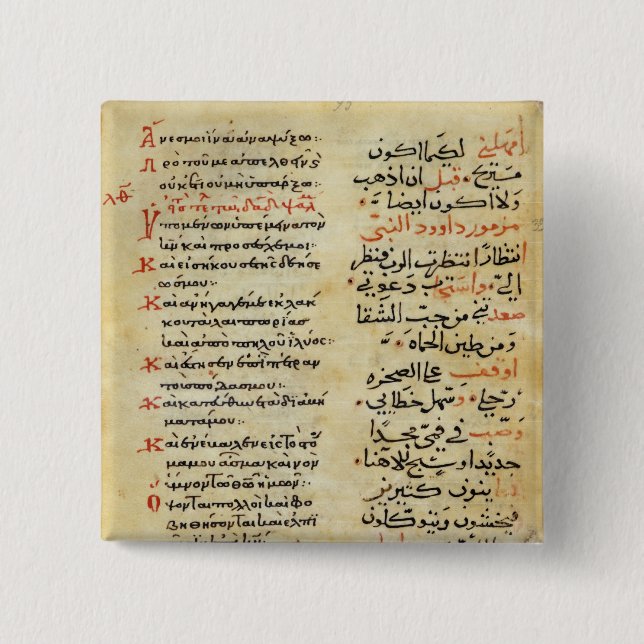 Ἄνες μοι ἵνα ἀναψύξω:·
Πρὸ τοῦ με ἀπελθῆν
οὐκέτι οὐ μὴ ὑπάρξω:·
λθ
Ὑπομένων ὑπέμεινα τὸν
κν καὶ προσέσχε μοι:·
Καὶ εἰσήκουσε τῆς δεήσε
ώς μου:·
Καὶ ἀνήγαγέν με ἐκ λάκ
κου ταλαιπωρίας
καὶ ἀπὸ πηλοῦ ἰλύος:·
Καὶ ἔστησεν ἐπὶ πέτραν
τοὺς πόδας μου:·
Καὶ κατηύθυνε τὰ διαβή
ματά μου:·
Καὶ ἐνέβαλεν εἰς τὸ στό
μα μου ᾆσμα καινὸν
ὕμνον τῷ θω ἡμῶν:·
Ὄψονται πολλοὶ καὶ φο
βηθήσονται καὶ ἐλπι
امهلني لكيما اكون
مستريح قبل ان اذهب
ولا اكون ايضا
مزمور داوود النبي
انتظارًا انتظرت الرب فنظر
اليّ واستجاب دعوتي
صعدني من جب الشقا
ومن طين الحماه
اوقف على الصخره
رجلي وسهل خطايي
وصب في فمي مجدًا
جديدا وتسبيح لالاهنا
ينون كثيرين
فيخشون ويتوكلون